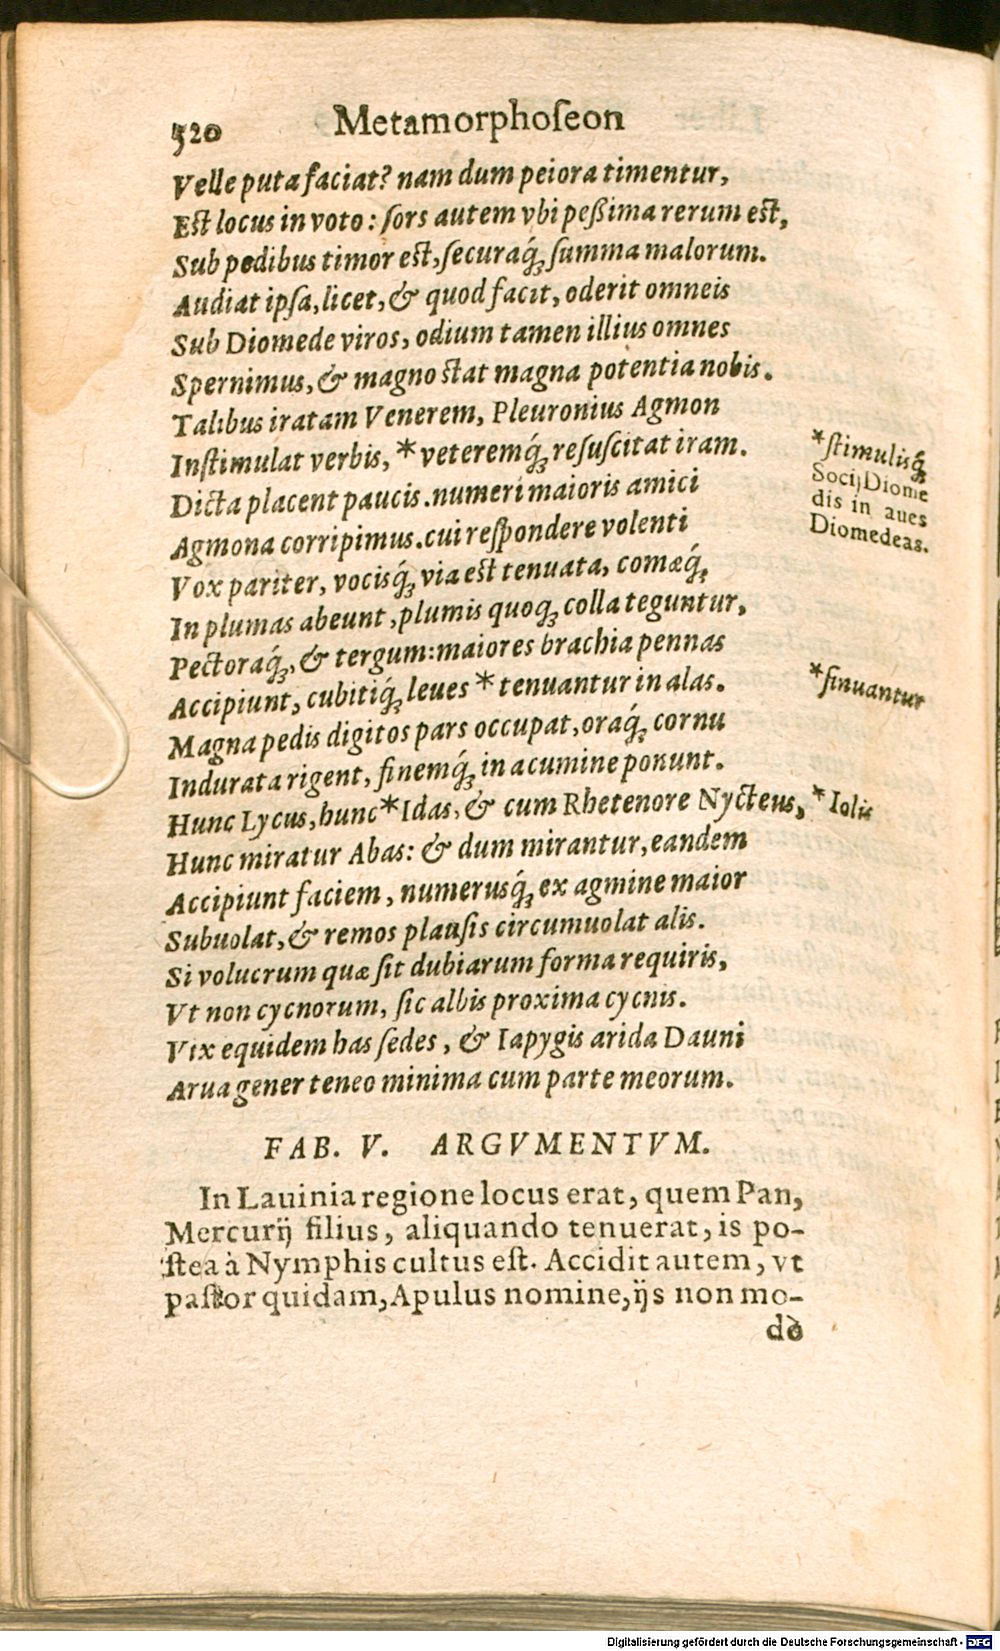 520 Metamorphoſeon
Velle puta faciat? nam dum peiora timentur,
Est locus in voto: ſors autem vbi peßima rerum est,
Sub pedibus timor est, ſecuraq́; ſumma malorum.
Audiat ipſa, licet, & quod facit, oderit omneis
Sub Diomede viros, odium tamen illius omnes
Spernimus, & magno stat magna potentia nobis.
Talibus iratam Venerem, Pleuronius Agmon
Inſtimulat verbis, * veteremq́; reſuſcitat iram.
*ſtimulisq́;
Dicta placent paucis. numeri maioris amici
Socij Diome
dis in aues
Agmona corripimus. cui reſpondere volenti
Diomedeas.
Vox pariter, vocisq́; via est tenuata, comæq́;
In plumas abeunt, plumis quoq; colla teguntur,
Pectoraq́;, & tergum: maiores brachia pennas
Accipiunt, cubitiq́; leues * tenuantur in alas.
*ſinuantur
Magna pedis digitos pars occupat, oraq́; cornu
Indurata rigent, finemq́; in acumine ponunt.
Hunc Lycus, hunc * Idas, & cum Rhetenore Nycteus,
* Iolis
Hunc miratur Abas: & dum mirantur, eandem
Accipiunt faciem, numerusq́; ex agmine maior
Subuolat, & remos plauſis circumuolat alis.
Si volucrum quæ ſit dubiarum forma requiris,
Vt non cycnorum, ſic albis proxima cycnis.
Vix equidem has ſedes, & Iapygis arida Dauni
Arua gener teneo minima cum parte meorum.
FAB. V. ARGVMENTVM.
In Lauinia regione locus erat, quem Pan,
Mercurij filius, aliquando tenuerat, is po-
ſtea à Nymphis cultus eſt. Accidit autem, vt
paſtor quidam, Apulus nomine, ijs non mo-
dò
Digitalisierung gefördert durch die Deutsche Forschungsgemeinschaft - DFG